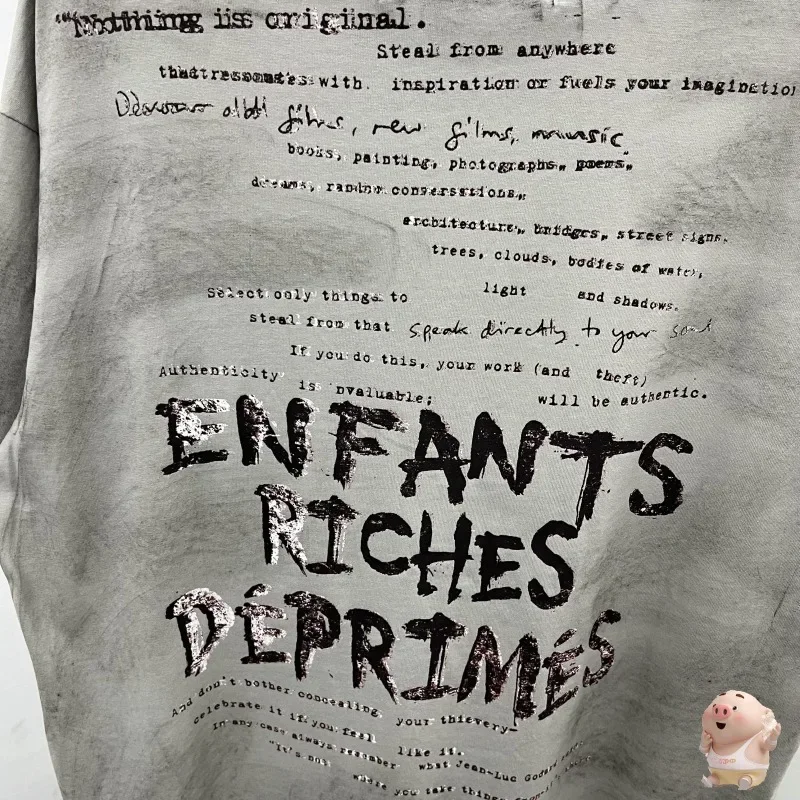 "Nothing is original.
Steal from anywhere
that resonates with inspiration or fuels your imagination
Devour old films, new films, music,
books, painting, photographs, poems,
dreams, random conversations,
architecture, bridges, street signs,
trees, clouds, bodies of water,
light and shadows.
Select only things to
steal from that speak directly to your soul
If you do this, your work (and theft)
will be authentic.
Authenticity is nvaluable;
ENFANTS
RICHES
DÉPRIMÉS
And don't bother concealing your thievery
celebrate it if you feel like it.
In any case always remember what Jean-Luc Godard
"It's not where you take things from